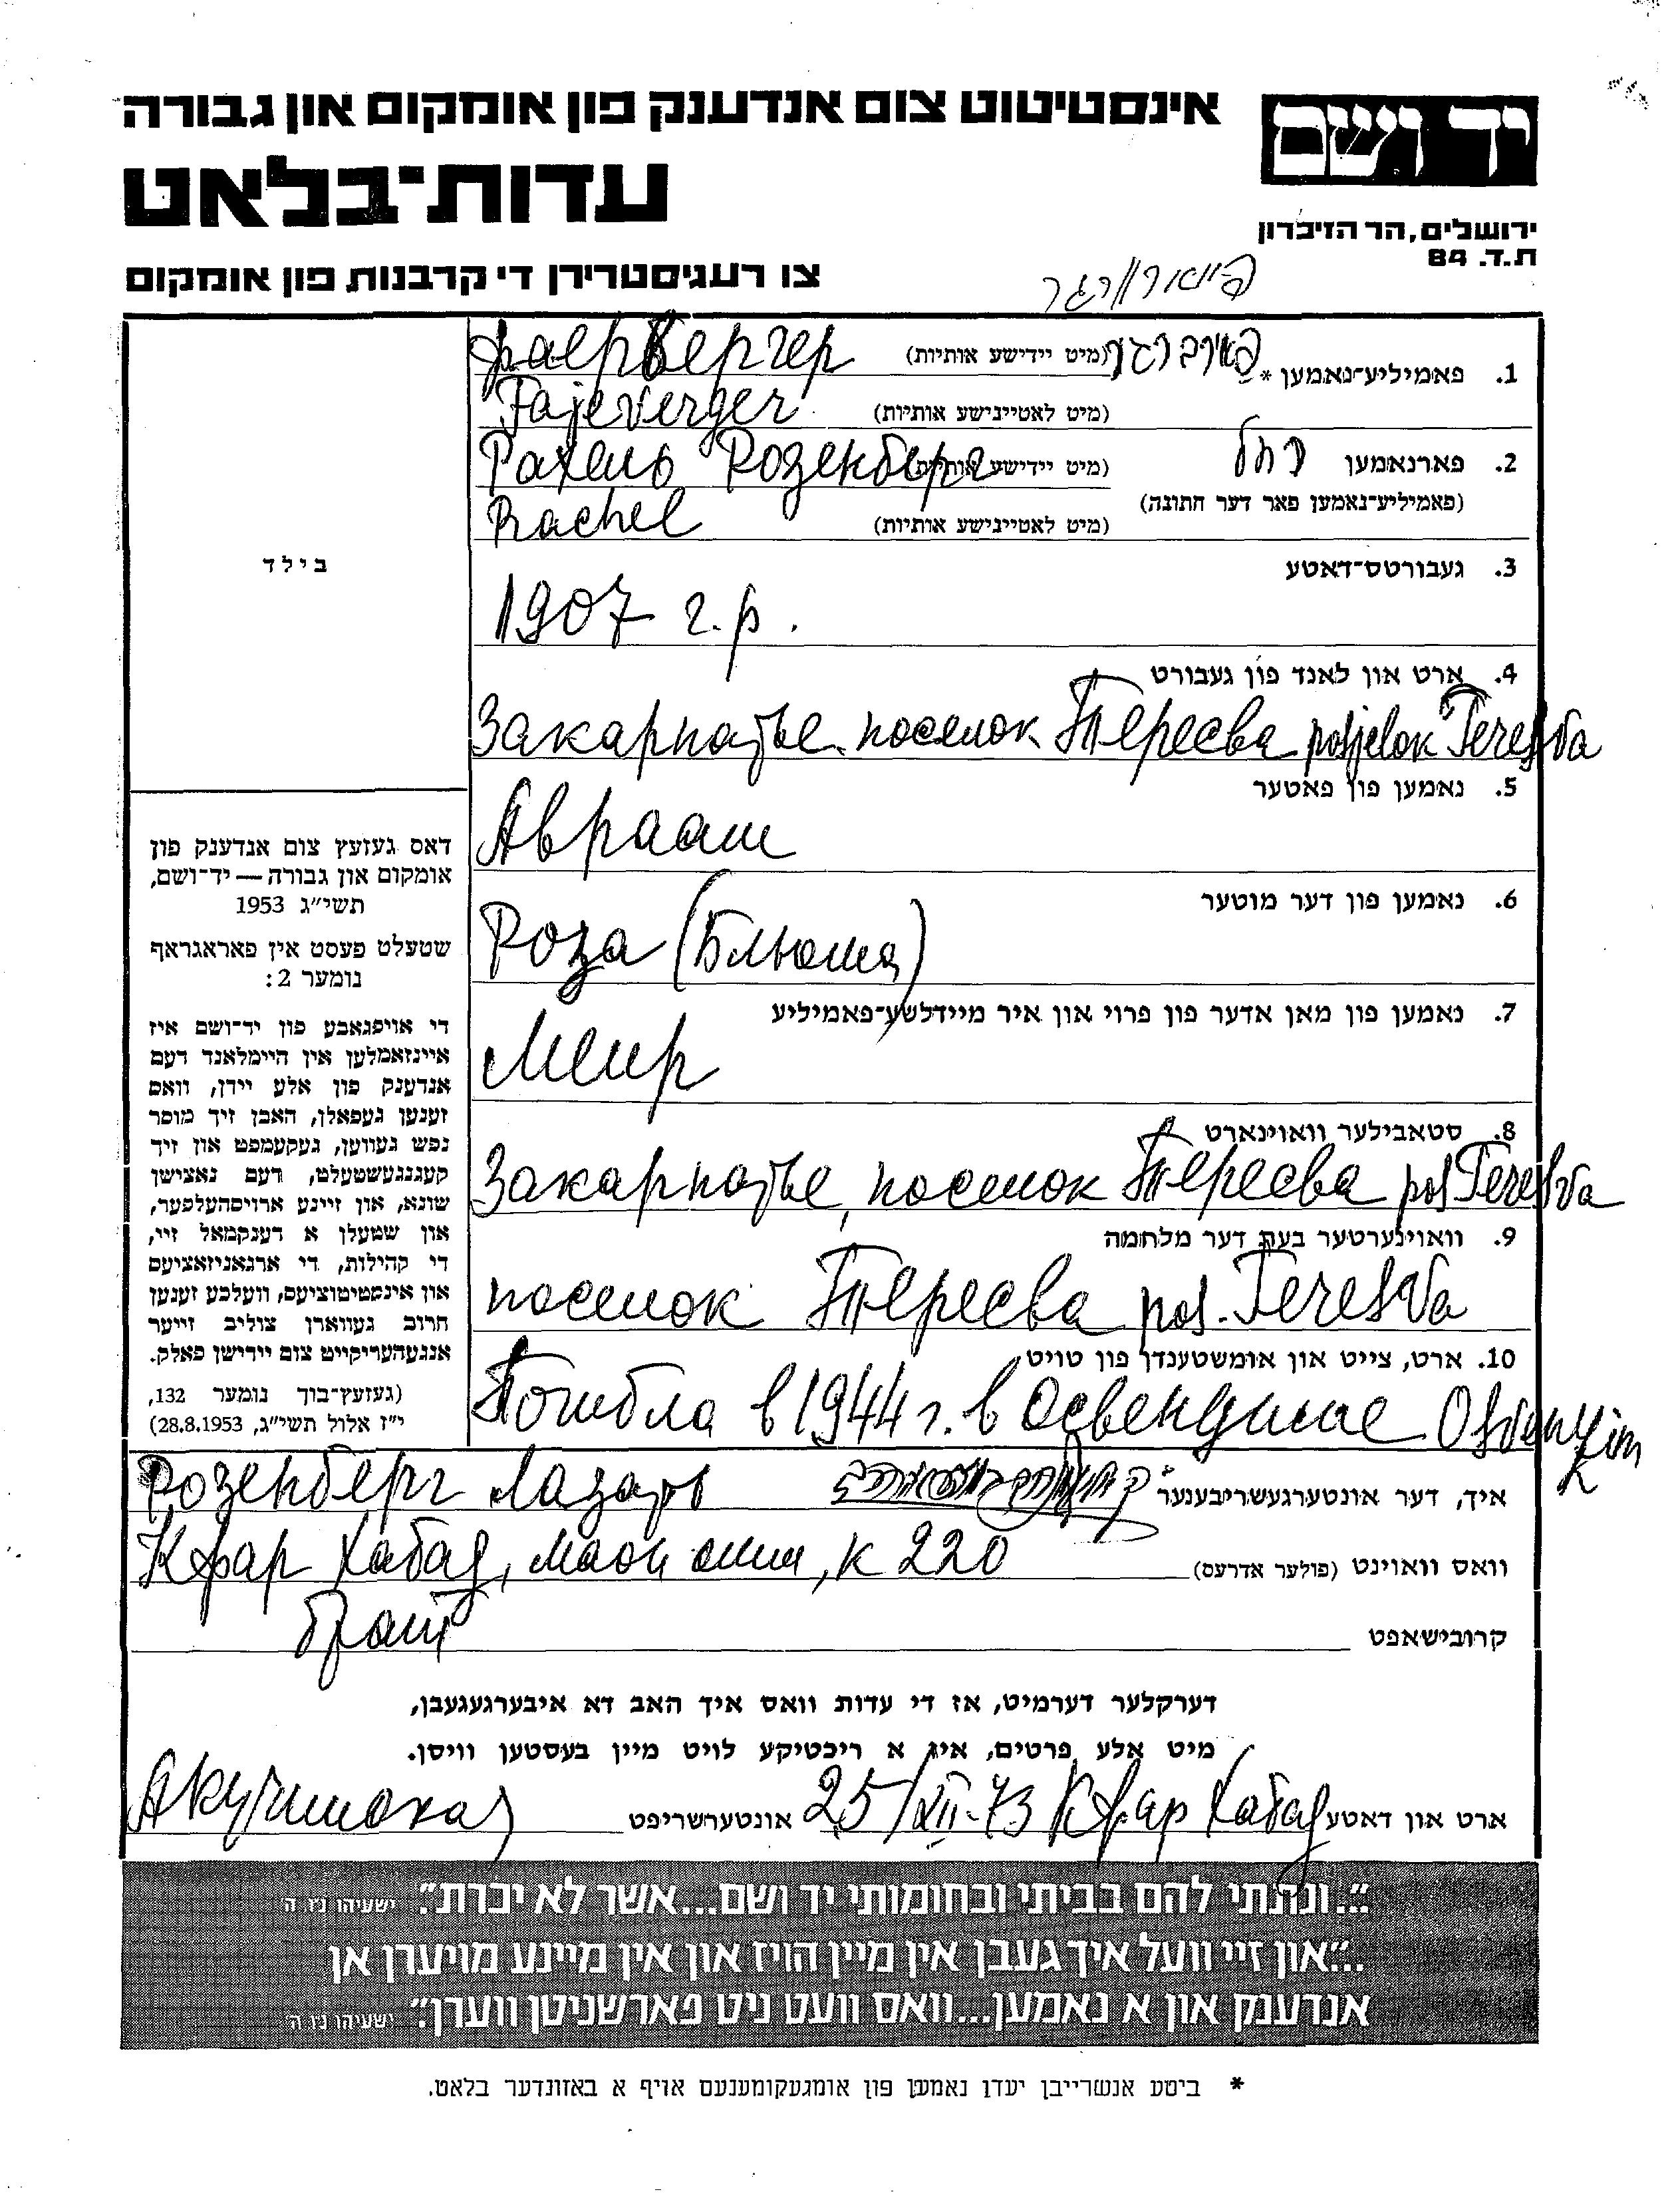 אינסטיטוט צום אנדענק פון אומקום און גבורה
יד ושם
עדות־בלאט
ירושלים, הר הזיכרון
ת.ד. 84
צו רעגיסטרירן די קרבנות פון אומקום
1. פאמיליע־נאמען * (מיט יידישע אותיות) Фаервергер
(מיט לאטיינישע אותיות) Fajeverger
2. פארנאמען רחל (מיט יידישע אותיות) Рахель Розенберг
(פאמיליע־נאמען פאר דער חתונה)
(מיט לאטיינישע אותיות) Rachel
בילד
3. געבורטס־דאטע
1907 г.р.
4. ארט און לאנד פון געבורט
Закарпатье поселок Тересва posjelok Teresva
5. נאמען פון פאטער
Авраам
6. נאמען פון דער מוטער
Роза (Блюма)
7. נאמען פון מאן אדער פון פרוי און איר מיידלשע־פאמיליע
Меир
8. סטאבילער וואוינארט
Закарпатье, поселок Тересва pos Teresva
9. וואוינערטער בעת דער מלחמה
поселок Тересва pos. Teresva
10. ארט, צייט און אומשטענדן פון טויט
Погибла в 1944 г. в Освенциме Osvenzim
דאס געזעץ צום אנדענק פון
אומקום און גבורה — יד־ושם,
תשי״ג 1953
שטעלט פעסט אין פאראגראף
נומער 2:
די אויפגאבע פון יד־ושם איז
איינזאמלען אין היימלאנד דעם
אנדענק פון אלע יידן, וואס
זענען געפאלן, האבן זיך מוסר
נפש געווען, געקעמפט און זיך
קעגנגעשטעלט, דעם נאצישן
שונא, און זיינע ארויסהעלפער,
און שטעלן א דענקמאל זיי,
די קהילות, די ארגאניזאציעס
און אינסטיטוציעס, וועלכע זענען
חרוב געווארן צוליב זייער
אנגעהעריקייט צום יידישן פאלק.
(געזעץ־בוך נומער 132,
י״ז אלול תשי״ג, 28.8.1953)
איך, דער אונטערגעשריבענער Розенберг Лазарь
וואס וואוינט (פולער אדרעס) Кфар Хабад, маон олим, к 220
קרובישאפט брат
דערקלער דערמיט, אז די עדות וואס איך האב דא איבערגעגעבן,
מיט אלע פרטים, איז א ריכטיקע לויט מיין בעסטען וויסן.
ארט און דאטע 25/XII-73 Кфар Хабад אונטערשריפט
„...ונתתי להם בביתי ובחומותי יד ושם...אשר לא יכרת״. ישעיהו נ״ו ה׳
„...און זיי וועל איך געבן אין מיין הויז און אין מיינע מויערן אן
אנדענק און א נאמען...וואס וועט ניט פארשניטן ווערן״. ישעיהו נ״ו ה׳
* ביטע אנשרייבן יעדן נאמען פון אומגעקומענעם אויף א באזונדער בלאט.